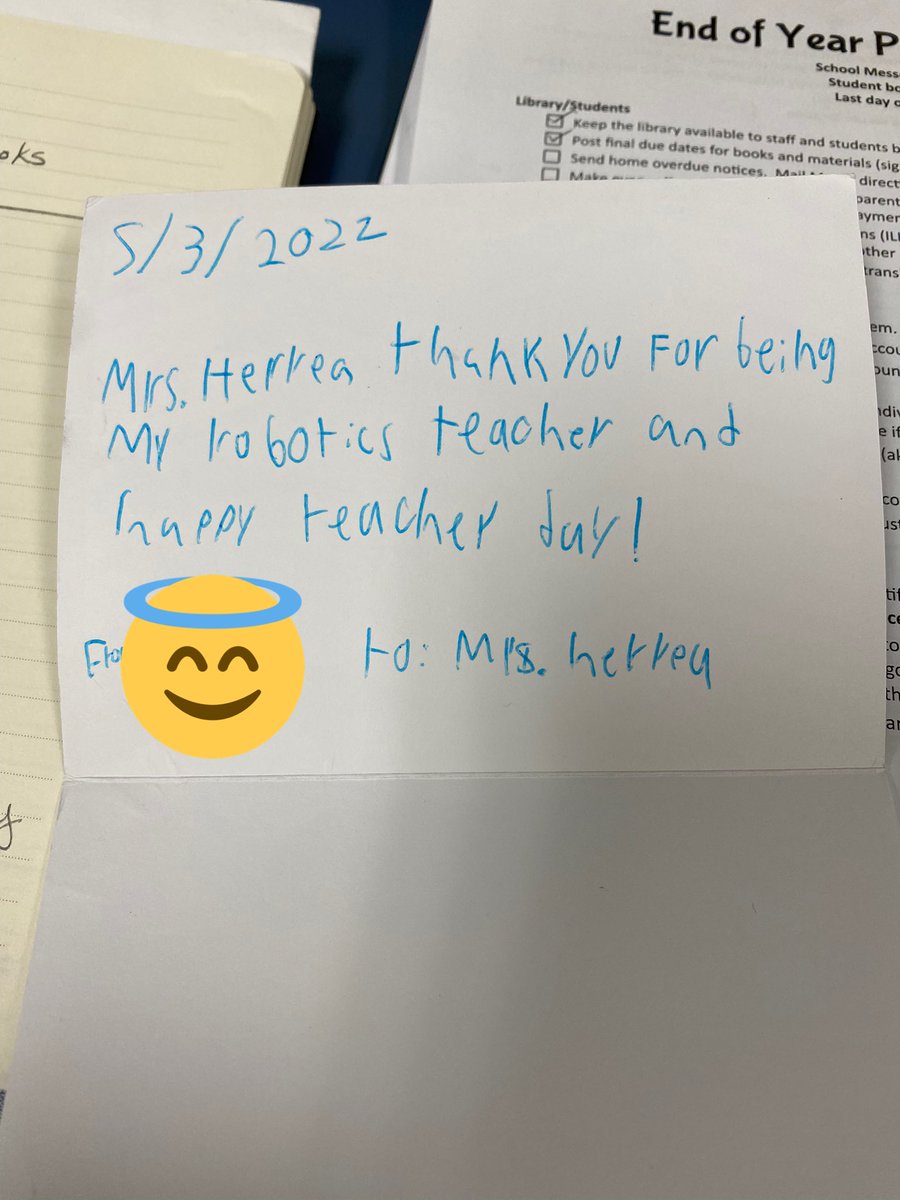 oks
End of Year P
School Mess
Student bo
Last day o
Library/Students
Keep the library available to staff and students b
Post final due dates for books and materials (sig
Send home overdue notices.
direct
parent
aymen
ns (ILL
ther
trans
em.
ccou
oun
5/3/2022
Mrs. Herrea thank you For being
My robotics teacher and
happy teacher day!
From
to: Mrs. herrea